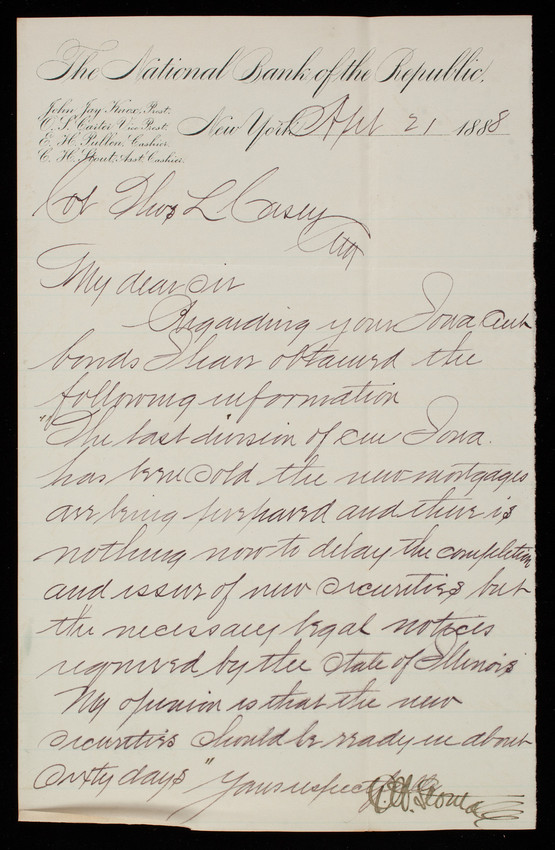 The National Bank of the Republic.
John Jay Knox, Prest.
O. S. Carter Vice Prest.
E. H. Pullen, Cashier.
C. H. Stout, Asst. Cashier.
New York Apl 21 1888
Col Thos L Casey
My dear sir
Regarding your Iowa Cent
bonds I have obtained the
following information
"The last division of Cen Iowa.
has been sold the new mortgages
are being prepared and there is
nothing now to delay the completion
and issue of new securities but
the necessary legal notices
required by the State of Illinois
My opinion is that the new
securities should be ready in about
sixty days" Yours respectf
C H Stout